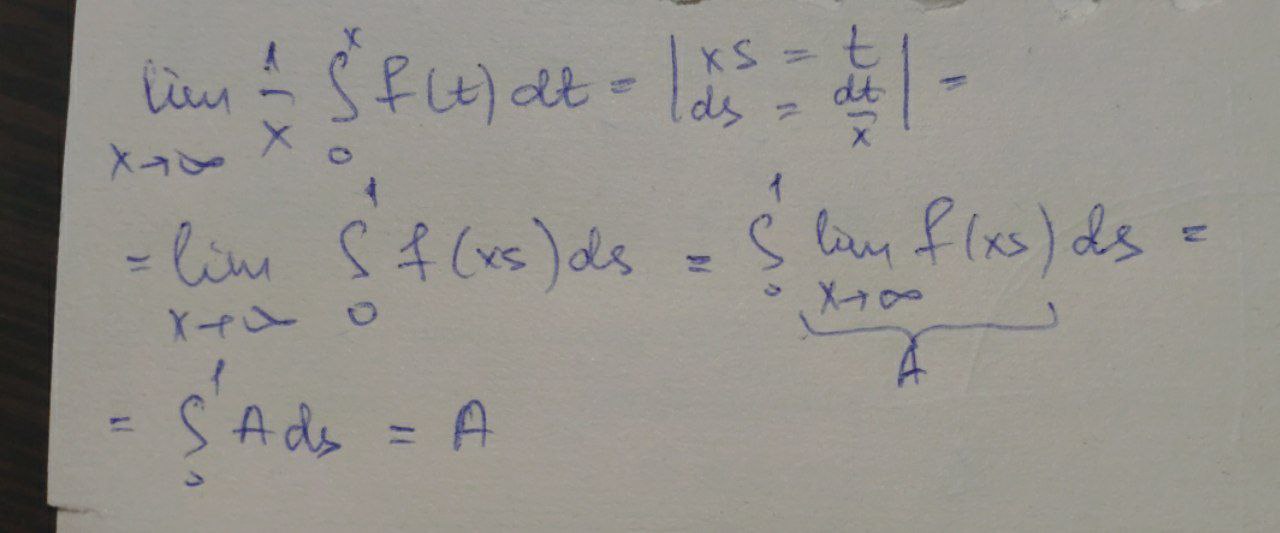 lim_{x→∞} 1/x ∫_0^x f(t) dt = | xs = t, ds = dt/x | =
= lim_{x→∞} ∫_0^1 f(xs) ds = ∫_0^1 lim_{x→∞} f(xs) ds =
A
= ∫_0^1 A ds = A